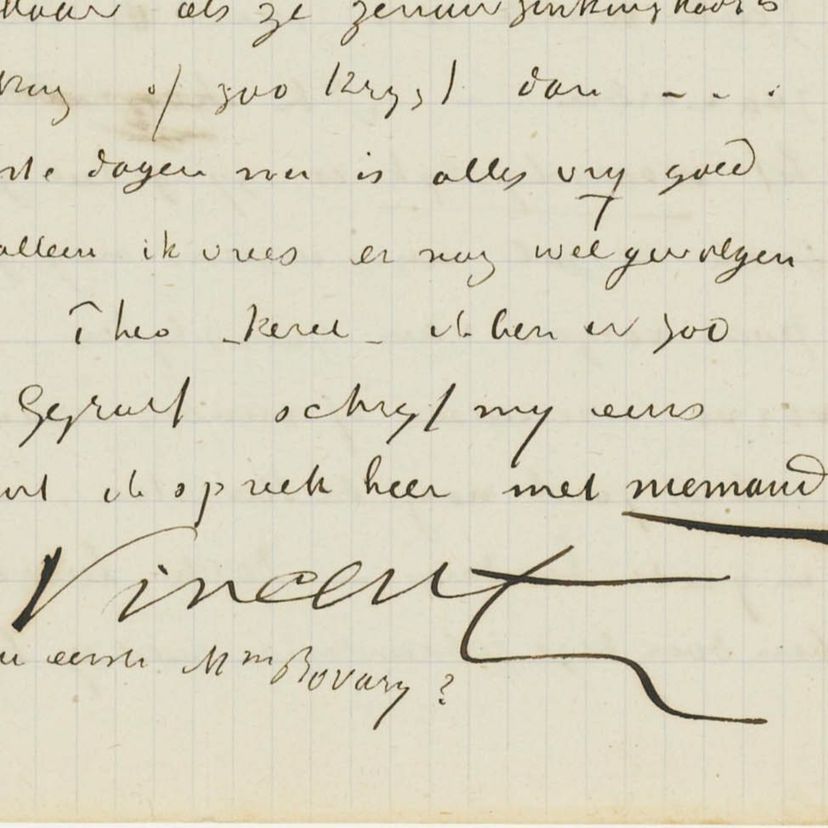 als ze zenuwzinkingkoorts
of zoo krygt dan - - .
dagen nu is alles vry goed
alleen ik vrees er nog wel gevolgen
Theo - kerel - ik ben er zoo
schryf my eens
ik spreek heer met niemand
Vincent
eerste Mme Bovary ?